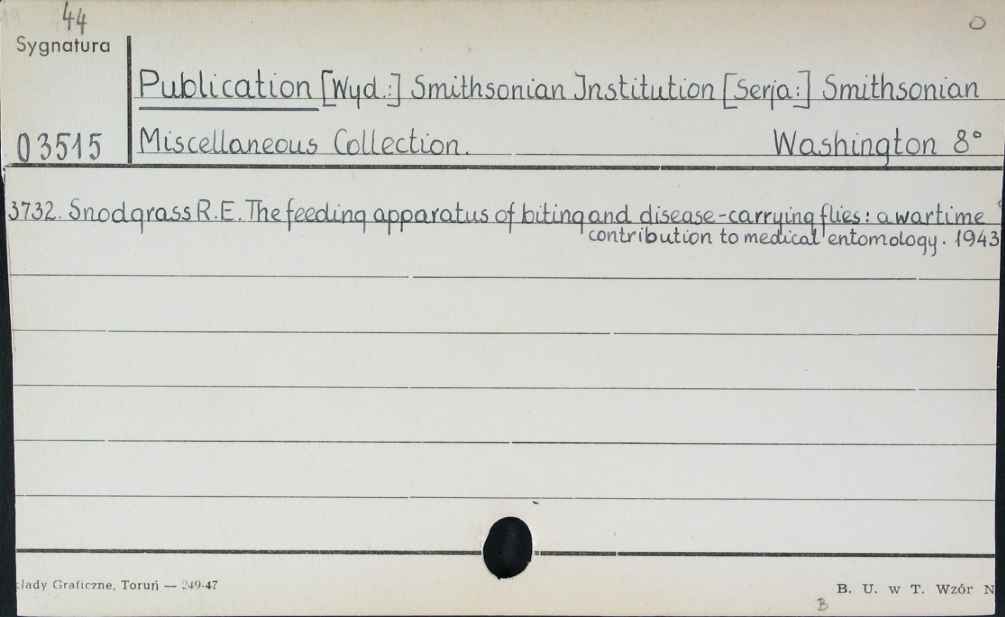 44
Sygnatura
Publication [Wyd.:] Smithsonian Institution [Serja:] Smithsonian
03515 Miscellaneous Collection. Washington 8°
3732. Snodgrass R.E. The feeding apparatus of biting and disease-carrying flies: a wartime
contribution to medical entomology. 1943
łady Graficzne, Toruń — 249-47
B. U. w T. Wzór N
B